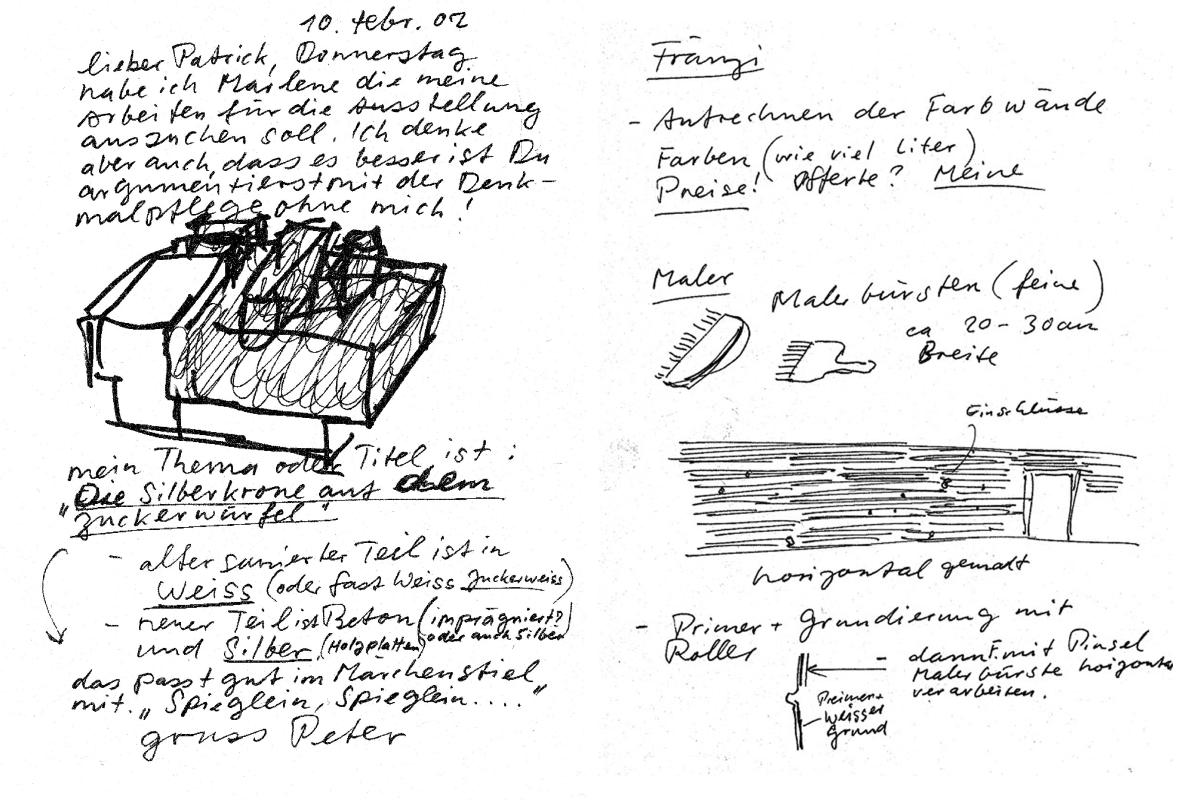 10. Febr. 02
lieber Patrick, Donnerstag
habe ich Marlene die meine
Arbeiten für die Ausstellung
auszuchen soll. Ich denke
aber auch, dass es besser ist Du
argumentierst mit der Denk-
malpflege ohne mich!
mein Thema oder Titel ist:
"Die Silberkrone auf dem
Zuckerwürfel"
- alter sanierter Teil ist in
Weiss (oder fast Weiss Zuckerweiss)
- neuer Teil ist Beton (imprägniert?
und Silber (Holzplatten) oder auch Silber
das passt gut im Märchenstiel
mit. „Spieglein, Spieglein...."
gruss Peter
Fränzi
- Aufrechnen der Farbwände
Farben (wie viel Liter)
Preise! Offerte? Meine
Maler
Malerbürsten (feine)
ca 20-30cm
Breite
Einschlüsse
horizontal gemalt
- Primer + Grundierung mit
Roller
- dann F. mit Pinsel
Malerbürste horizonta
verarbeiten.
Primer+
Weisser
Grund